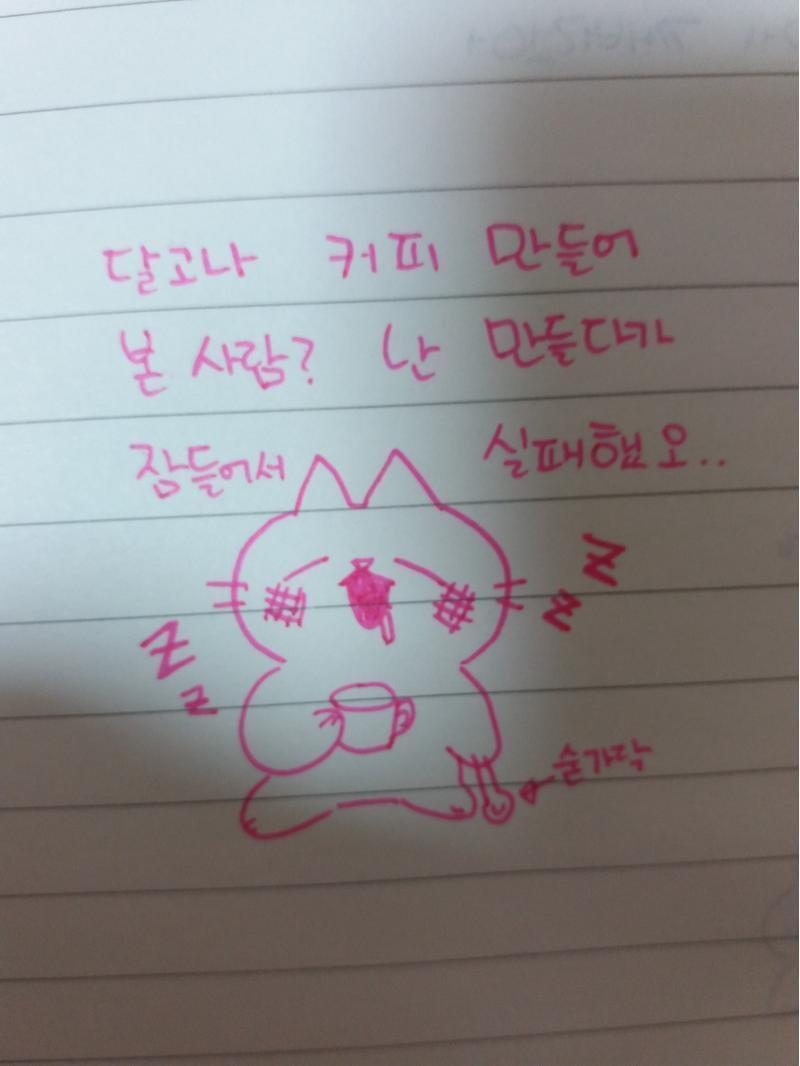 달고나 커피 만들어
본 사람? 난 만들다가
잠들어서 실패했오..
z
z
z
z
숟가락